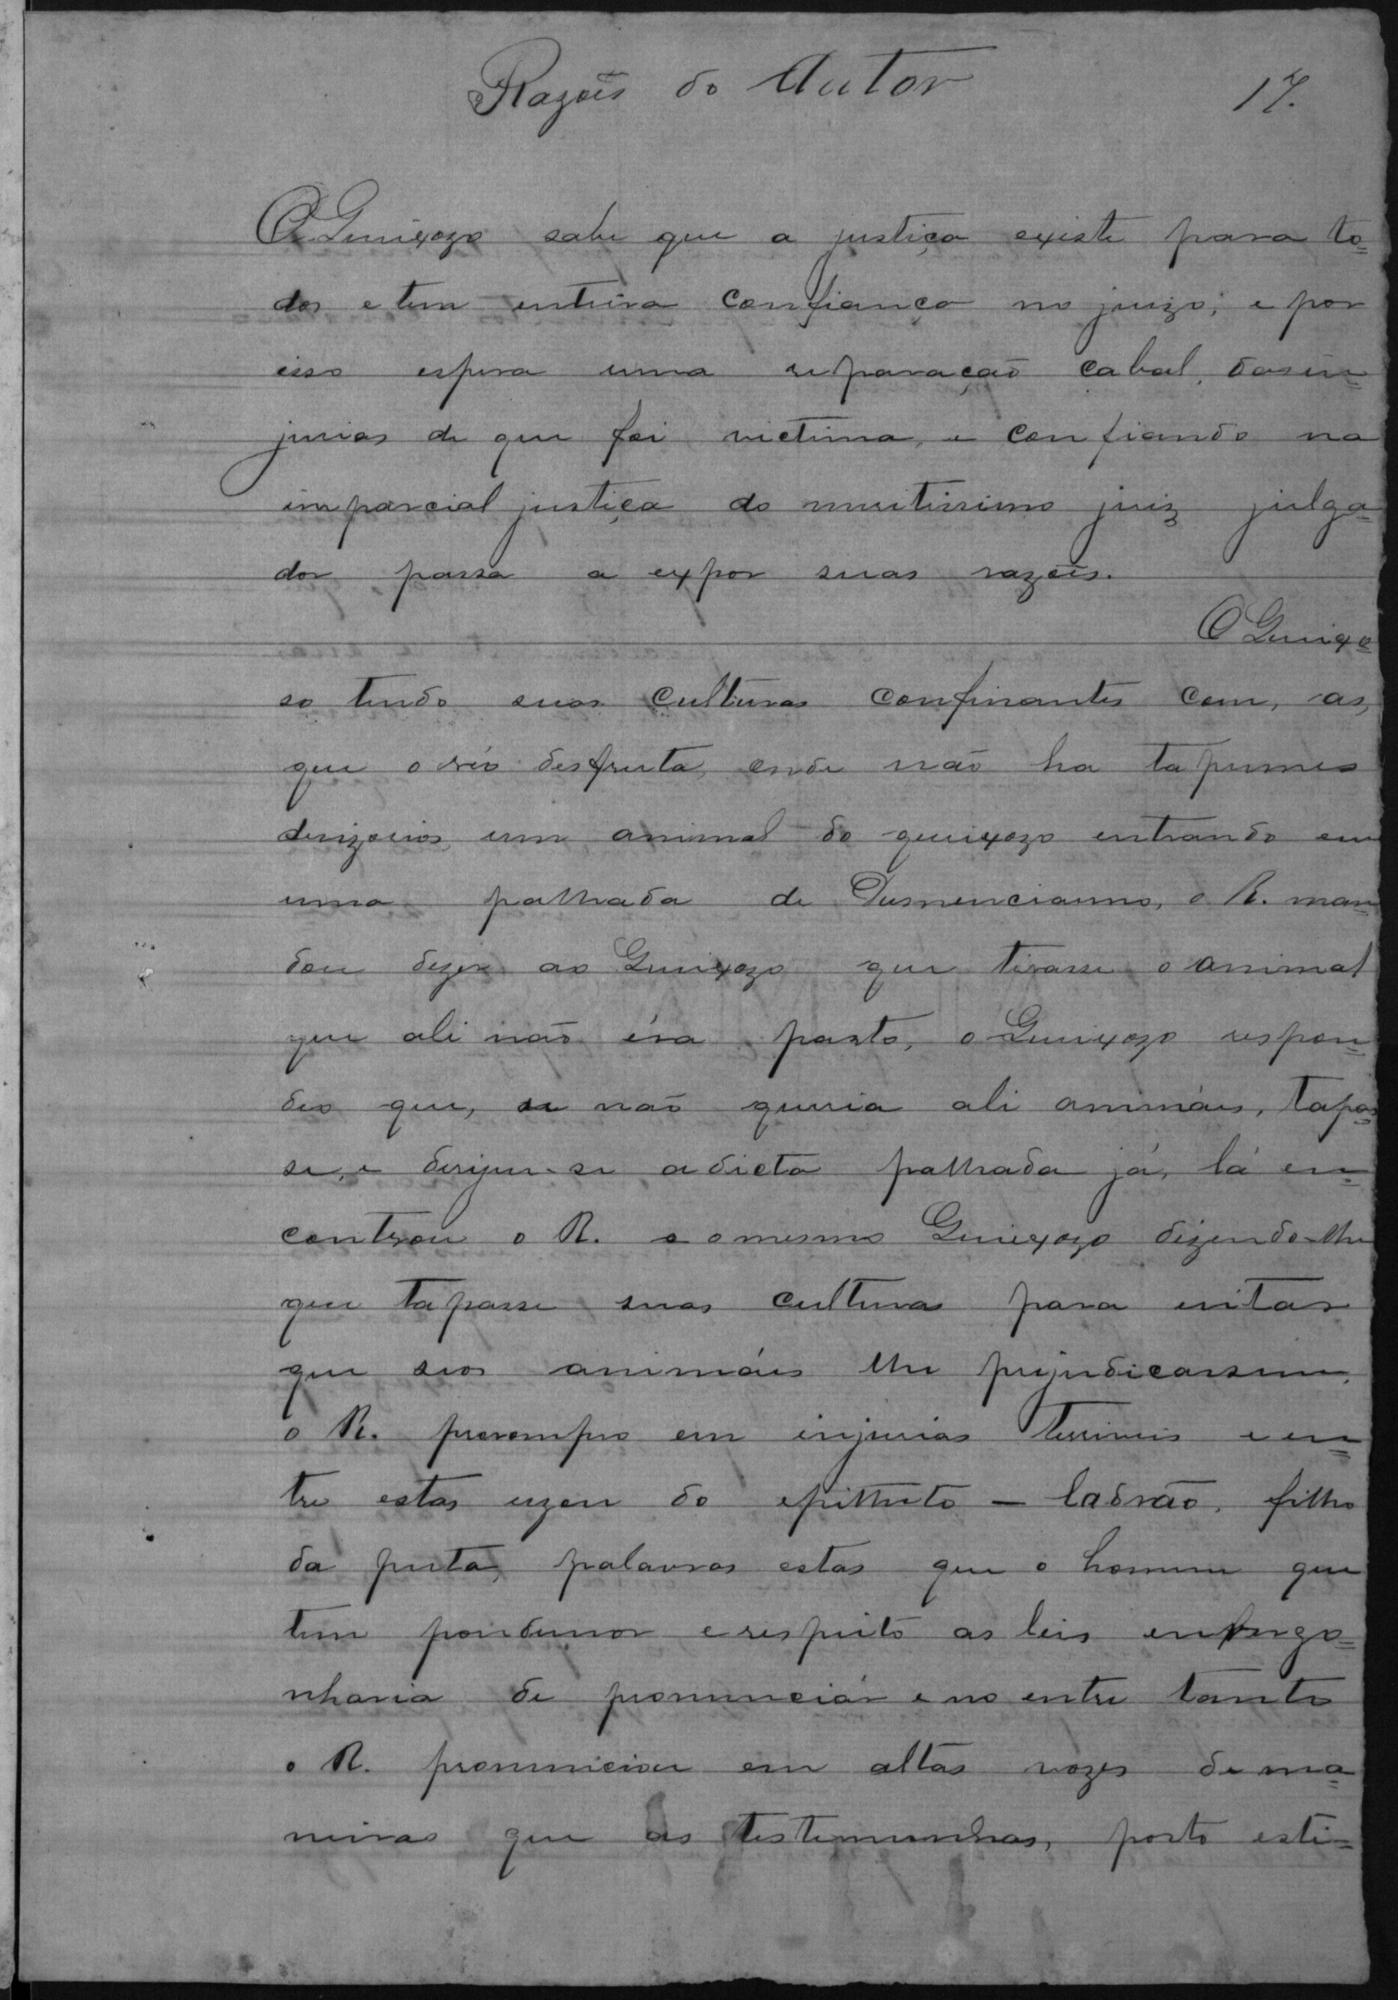 Razoẽs do Autor 17.
O Queixozo sabe que a justiça existe para to=
dos e tem enteira confiança no juizo; e por
isso espera uma reparação cabal, das in=
jurias de que foi victima, e confiando na
imparcial justiça do meritissimo juiz julga=
dor passa a expor suas razoẽs.
O Queixo=
so tendo suas culturas confinantes com, as,
que o réo desfruta, onde não ha tapumes
devizorios, um animal do queixozo entrando em
uma palhada de, o R. man
dou dizer ao Queixozo que tirasse o animal
que ali não éra pasto, o Queixozo respon=
deo que, se não queria ali animáes, tapas=
se, e derijeu-se a dicta palhada já, lá en=
controu o R. e o mesmo Queixozo dizendo-lhe
que tapasse suas culturas para evitar
que seos animáes lhe prejudicassem,
o R. prorompeo em injurias terriveis e en=
tre estas uzou do epitheto — ladrão, filho
da puta, palavras estas que o homem que
tem pondunor e respeito as leis envergo=
nharia de pronunciár e no entre tanto
o R. pronunciou em altas vozes de ma=
neiras que as testemunhas, posto esti=